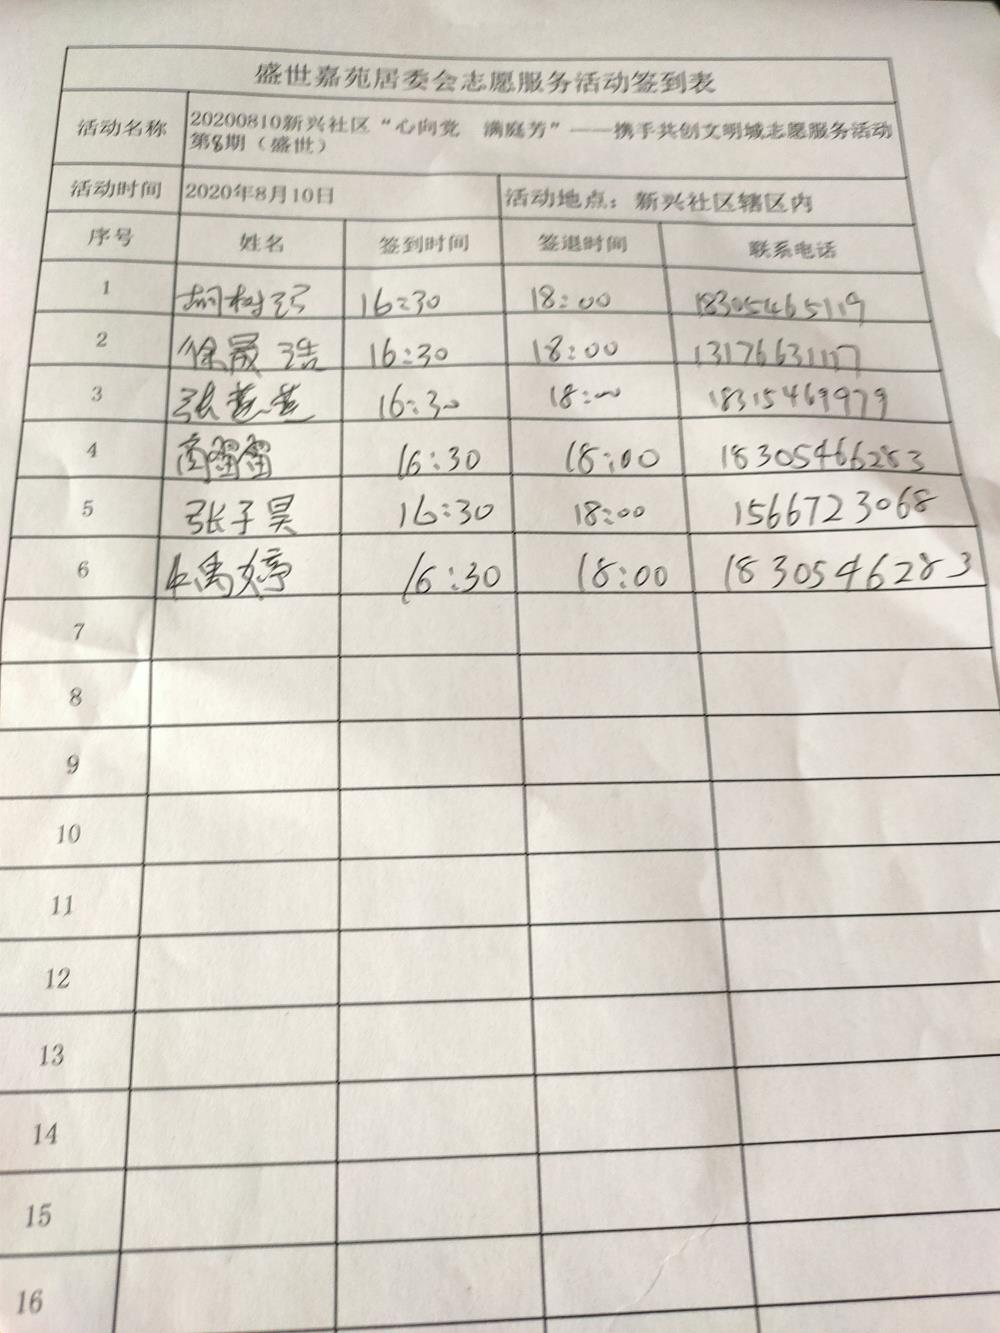 盛世嘉苑居委会志愿服务活动签到表
活动名称 20200810新兴社区“心向党 满庭芳”——携手共创文明城志愿服务活动
第8期（盛世）
活动时间 2020年8月10日 活动地点：新兴社区辖区内
序号 姓名 签到时间 签退时间 联系电话
1 16:30 18:00 18305465119
2 徐晟浩 16:30 18:00 13176631117
3 张 16:30 18:00 18315469979
4 16:30 18:00 18305466283
5 张子昊 16:30 18:00 15667223068
6 16:30 18:00 18305466283
7
8
9
10
11
12
13
14
15
16